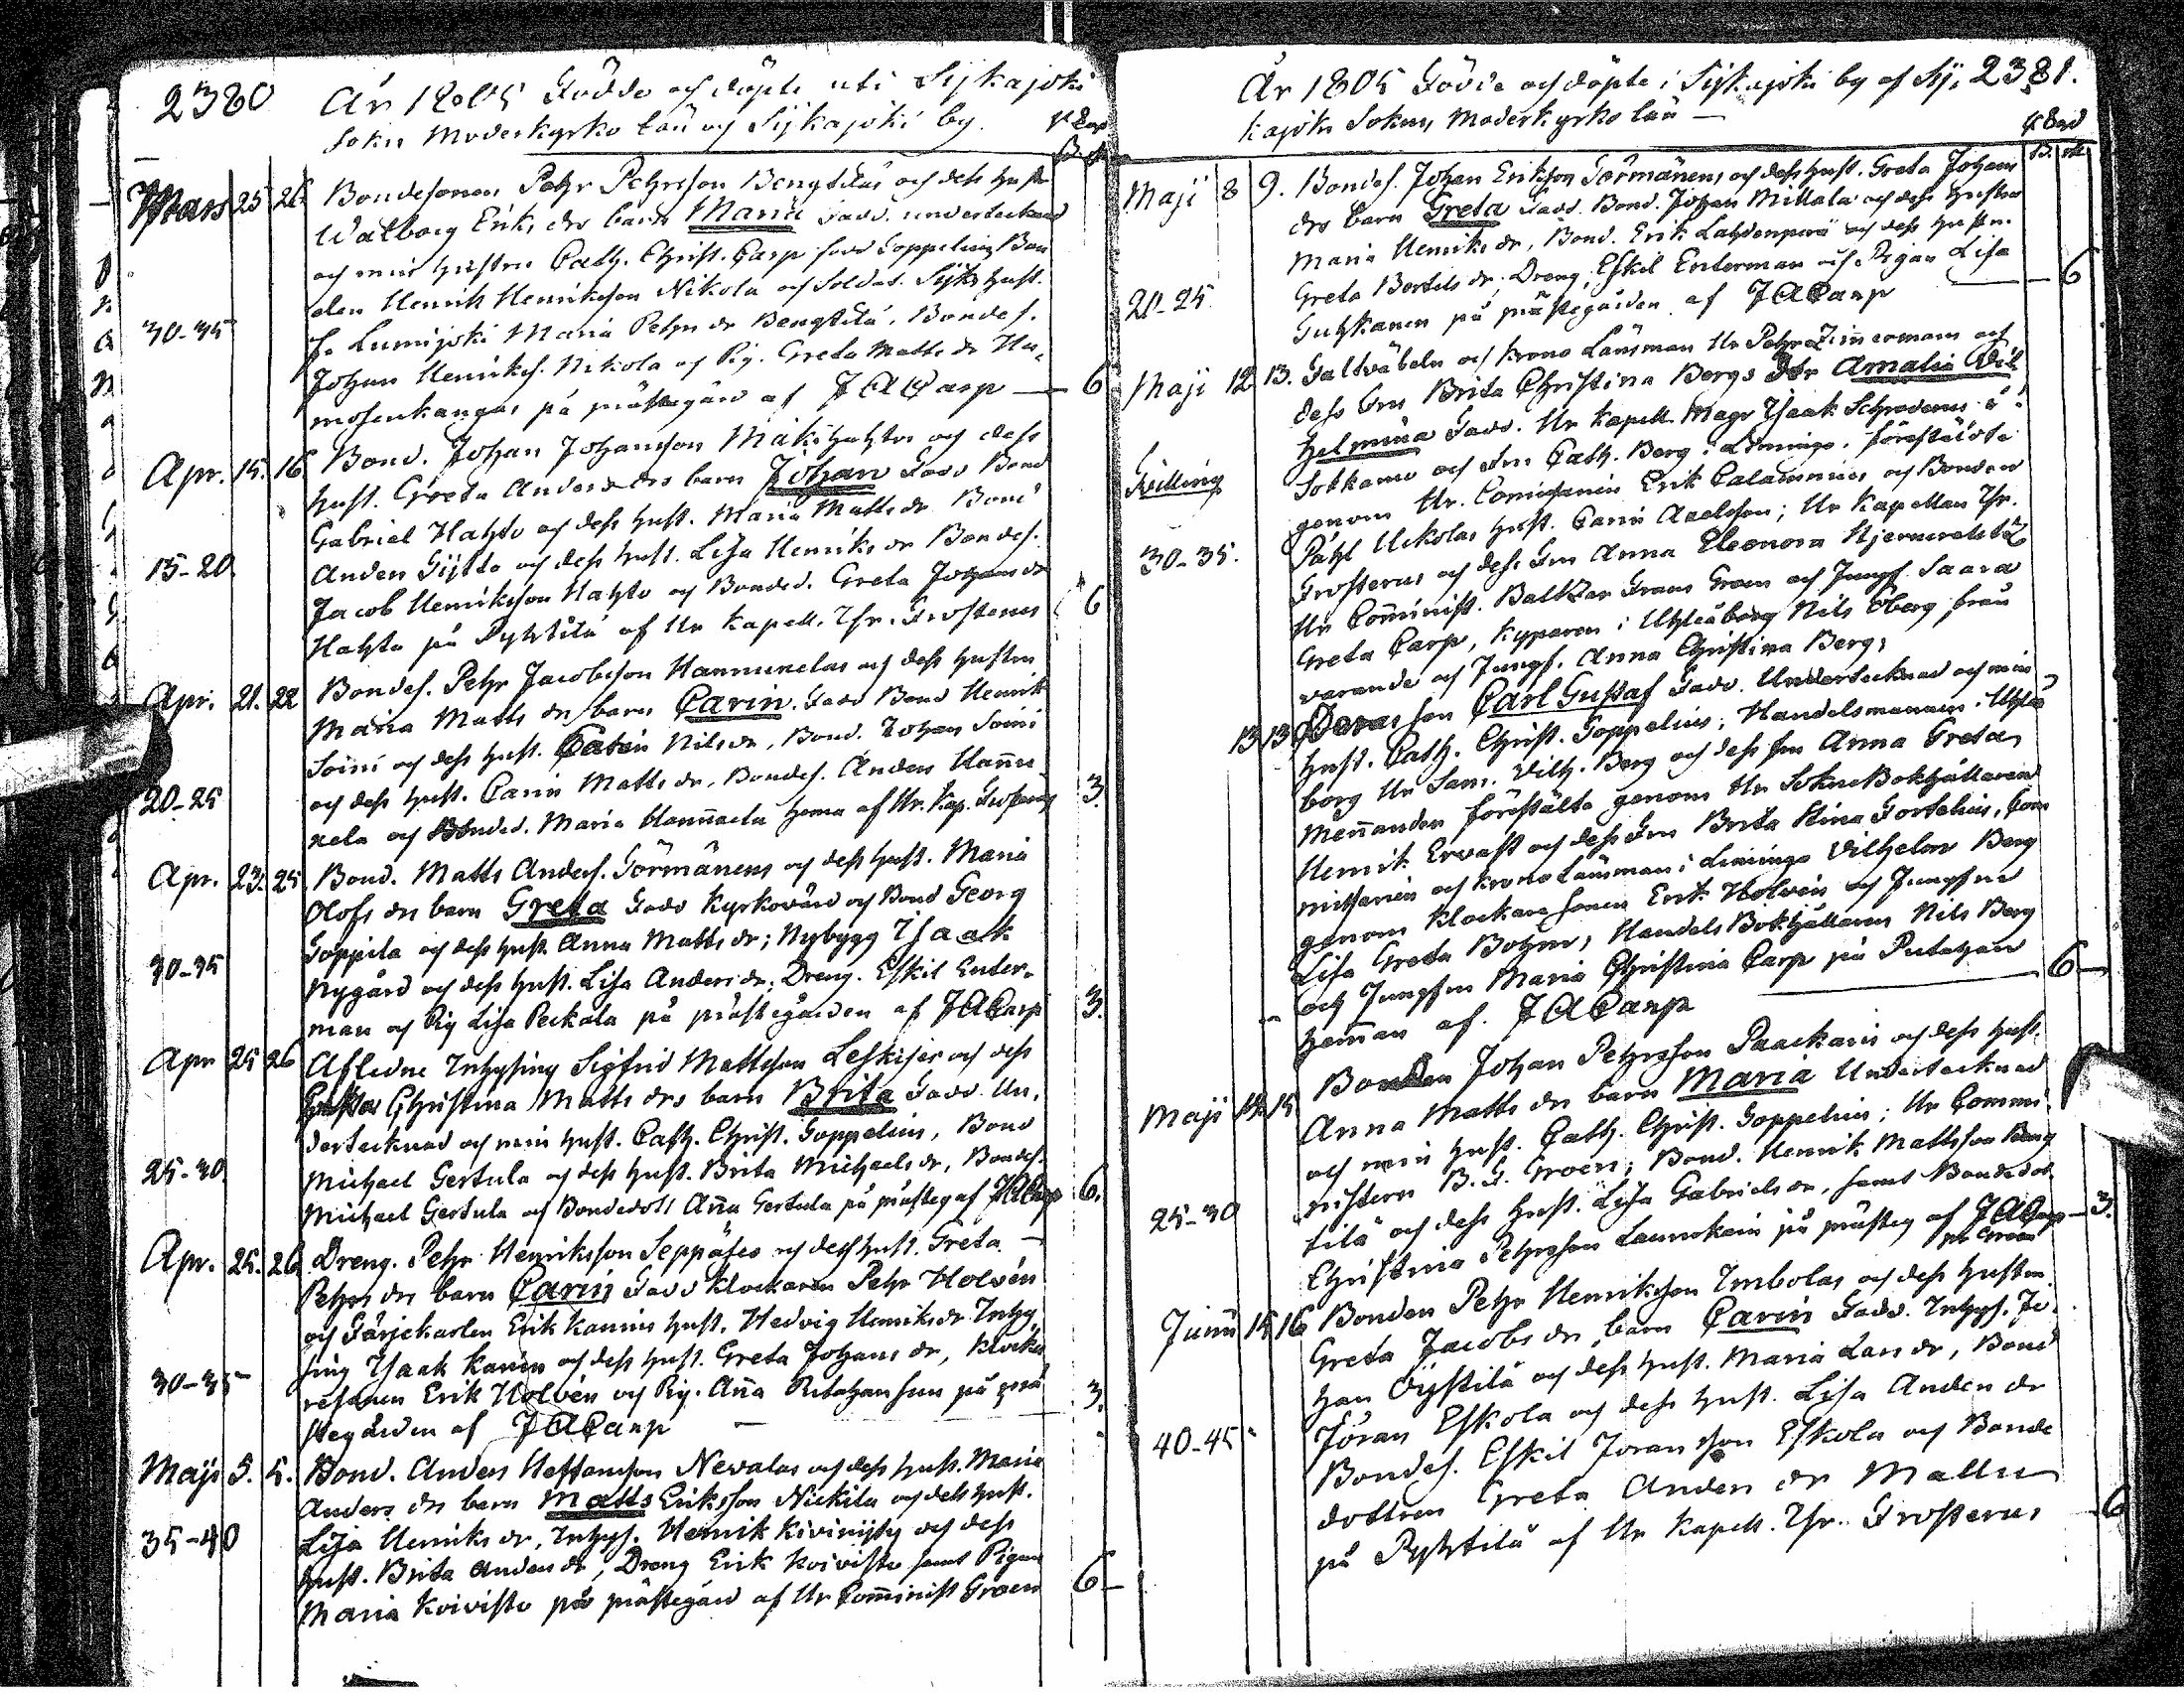 2380 År 1805 Födde och döpte uti Sijkajoki
Sokn Moderkyrko län och Sijkajoki by.
Mars 25 26. Bondesonen Pehr Pehrsson Bengtiläs och dess hustr
Walborg Eriks drs barn Maria Fadd. undertecknad
och min hustru Cath. Christ. Carp född Toppelius, Bon
den Henrik Henriksson Nikola och Soldat. Sijks hust.
fr. Lumijoki Maria Pehrs dr Bengtilä, Bondes.
30-35
Johan Henrikss. Nikola och Pig. Greta Matts dr Hu-
mosenkangas på prästegård af J A Carp — 6
Apr. 15. 16 Bond. Johan Johansson Mäkihahtos och dess
hust. Greta Anders drs barn Johan Fadd Bond
Gabriel Hahto och dess hust. Maria Matts dr Bond
Anders Gijtto och dess hust. Lisa Henriks dr Bondes.
15-20
Jacob Henriksson Hahto och Bonded. Greta Johans dr
Hahto på Pyhtilä af Hr Kapell. Thr. Frosterus 6
Apr. 21. 22 Bondes. Pehr Jacobsson Hannuxelas och dess hustru
Maria Matts drs barn Carin. Fadd Bond Henrik
Soini och dess hust. Catarin Nils dr, Bond. Johan Soini
och dess hust. Carin Matts dr, Bondes. Anders Hannu-
20-25
xela och Bonded. Maria Hannuxela hema af Hr. Kap. Frosterus 3.
Apr. 23. 25 Bond. Matts Anders. Törmänens och dess hust. Maria
Olofs drs barn Greta Fadd Kyrkovärd och Bond Georg
Toppila och dess hust. Anna Matts dr; Nybygg Isaak
30-35
Nygård och dess hust. Lisa Anders dr; Dreng. Eskil Enter-
man och Pig Lisa Peckala på prästegården af J A Carp 3.
Apr 25 26 Afledne Inhysing Sigfrid Mattsson Leskisjes och dess
Christina Matts drs barn Brita Fadd. Un-
dertecknad och min hust. Cath. Christ. Toppelius, Bond
25-30
Michael Gertula och dess hust. Brita Michaels dr, Bondes.
Michael Gertula och Bondedott Anna Gertula på prästeg af J A Carp 6.
Apr. 25. 26 Dreng. Pehr Henriksson Seppäses och dess hust. Greta —
Pehrs drs barn Carin Fadd Klockaren Pehr Holvén
och Färjekarlen Erik Kanins hust. Hedvig Henriks dr Inhy-
sing Isaak Kanin och dess hust. Greta Johans dr, Klocka
30-35
resonen Erik Holvén och Pig. Anna Ritahan sun på prä 3.
stegården af J A Carp —
Maji 5. 5. Bond. Anders Steffansson Nevalas och dess hust. Maria
Anders drs barn Matts Eriksson Nickila och dess hust.
35-40
Lisa Henriks dr, Inhys. Henrik Kivinijty och dess
hust. Brita Anders dr, Dreng Erik Koivisto samt Pigan
Maria Koivisto på prästegård af Hr Cominist Graen 6 —
År 1805 Födde och döpte i Sijkajoki by af Sij- 2381.
kajoki Sokens Moderkyrko län —
Maji 8 9. Bondes. Johan Eriksson Törmänens och dess hust. Greta Johans
drs barn Greta Fadd. Bond. Johan Millala och dess hustru
Maria Henriks dr, Bond. Erik Lahdenperä och dess hustru.
Greta Bertils dr, Dreng. Eskil Enterman och Pigan Lisa
20-25
Guhkanen på prästegården af J A Carp — 6
Maji 12 13. Faltväbeln och Krono Länsman Hr Pehr Zimermans och
dess Fru Brita Christina Bergs dtr Amalia Wil
helmina Fadd. Hr Kapell. Magr Isaak Schroderus i
Sotkamo och Fru Cath. Berg i Limingo. föreställdte
Tvilling
genom Hr. Comissarien Erik Calamnius och Bonden
Påhl Uckolas hust. Carin Axelsson; Hr Kapellan Thr.
30-35.
Frosterus och dess Fru Anna Eleonora Stjerncreutz
Hr Cominist. Baltzar Frans Graen och Jungf. Saara
Greta Carp, Kyparen i Uhleåborg Nils Öberg från
varande och Jungf. Anna Christina Berg;
13 13 Deras son Carl Gustaf Fadd. Undertecknad och min
hust. Cath. Christ. Toppelius; Handelsmannen i Uhleå
borg Hr Sam. Vilh. Berg och dess fru Anna Greta
Mennander föreställte genom Hr Sokne Bokhållaren
Henrik Ervast och dess Fru Brita Stina Fortelius, Com
missarien och Krono Länsman i Limingo Vilhelm Berg
genom Klockare Sonen Erik Holvén och Jungfru
Lisa Greta Bohm; Handels Bokhållaren Nils Berg
och Jungfru Maria Christina Carp på Rutahan
heman af J A Carp 6 —
Maji 14 15 Bonden Johan Pehrsson Paackaris och dess hust.
Anna Matts drs barn Maria Undertecknad
och min hust. Cath. Christ. Toppelius; Hr Commi-
nistern B. F. Groen; Bond. Henrik Mattsson Beng
25-30
tilä och dess hust. Lisa Gabriels dr, samt Bondedot.
Christina Pehrsson Launokain på prästeg af J A Carp — 3.
Junii 15 16 Bonden Pehr Henriksson Imbolas och dess hustru
Greta Jacobs drs barn Carin Fadd. Inhys. Jo-
han Öystilä och dess hust. Maria Lars dr, Bond
Jöran Eskola och dess hust. Lisa Anders dr
40-45
Bondes. Eskil Joransson Eskola och Bonde
dottren Greta Anders dr Mallu
på Pyhtilä af Hr Kapell. Thr. Frosterus 6